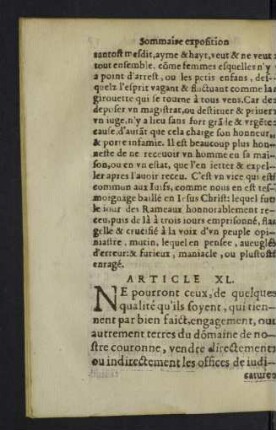 Sommaire exposition
tantost mesdit, ayme & hayt, veut & ne veut
tout ensemble. cõme femmes esquelles n'y
a point d'arrest, ou les petis enfans, des-
quelz l'esprit vagant & fluctuant comme la
girouette qui se tourne à tous vens. Car de
deposer vn magistrat, ou destituer & priuer
vn iuge, n'y a lieu sans fort grãde & vrgẽte
cause, d'autãt que cela charge son honneur,
& porte infamie. Il est beaucoup plus hon-
neste de ne receuoir vn homme en sa mai-
son, ou en vn estat, que l'en ietter & expel-
ler apres l'auoir receu. C'est vn vice qui est
commun aux Iuifs, comme nous en est tes-
morgnage baillé en Iesus Christ: lequel fut
le iour des Rameaux honnorablement re-
ceu, puis de là à trois iours emprisonné, fla-
gellé & crucifié à la voix d'vn peuple opi-
niastre, mutin, lequel en pensee, aueuglé
d'erreur: & furieux, maniacle, ou plustost
enragé.
ARTICLE XL.
NE pourront ceux, de quelques
qualité qu'ils soyent, qui tien-
nent par bien faict, engagement, ou
autrement terres du domaine de no-
stre couronne, vendre directement
ou indirectement les offices de iudi-
cature